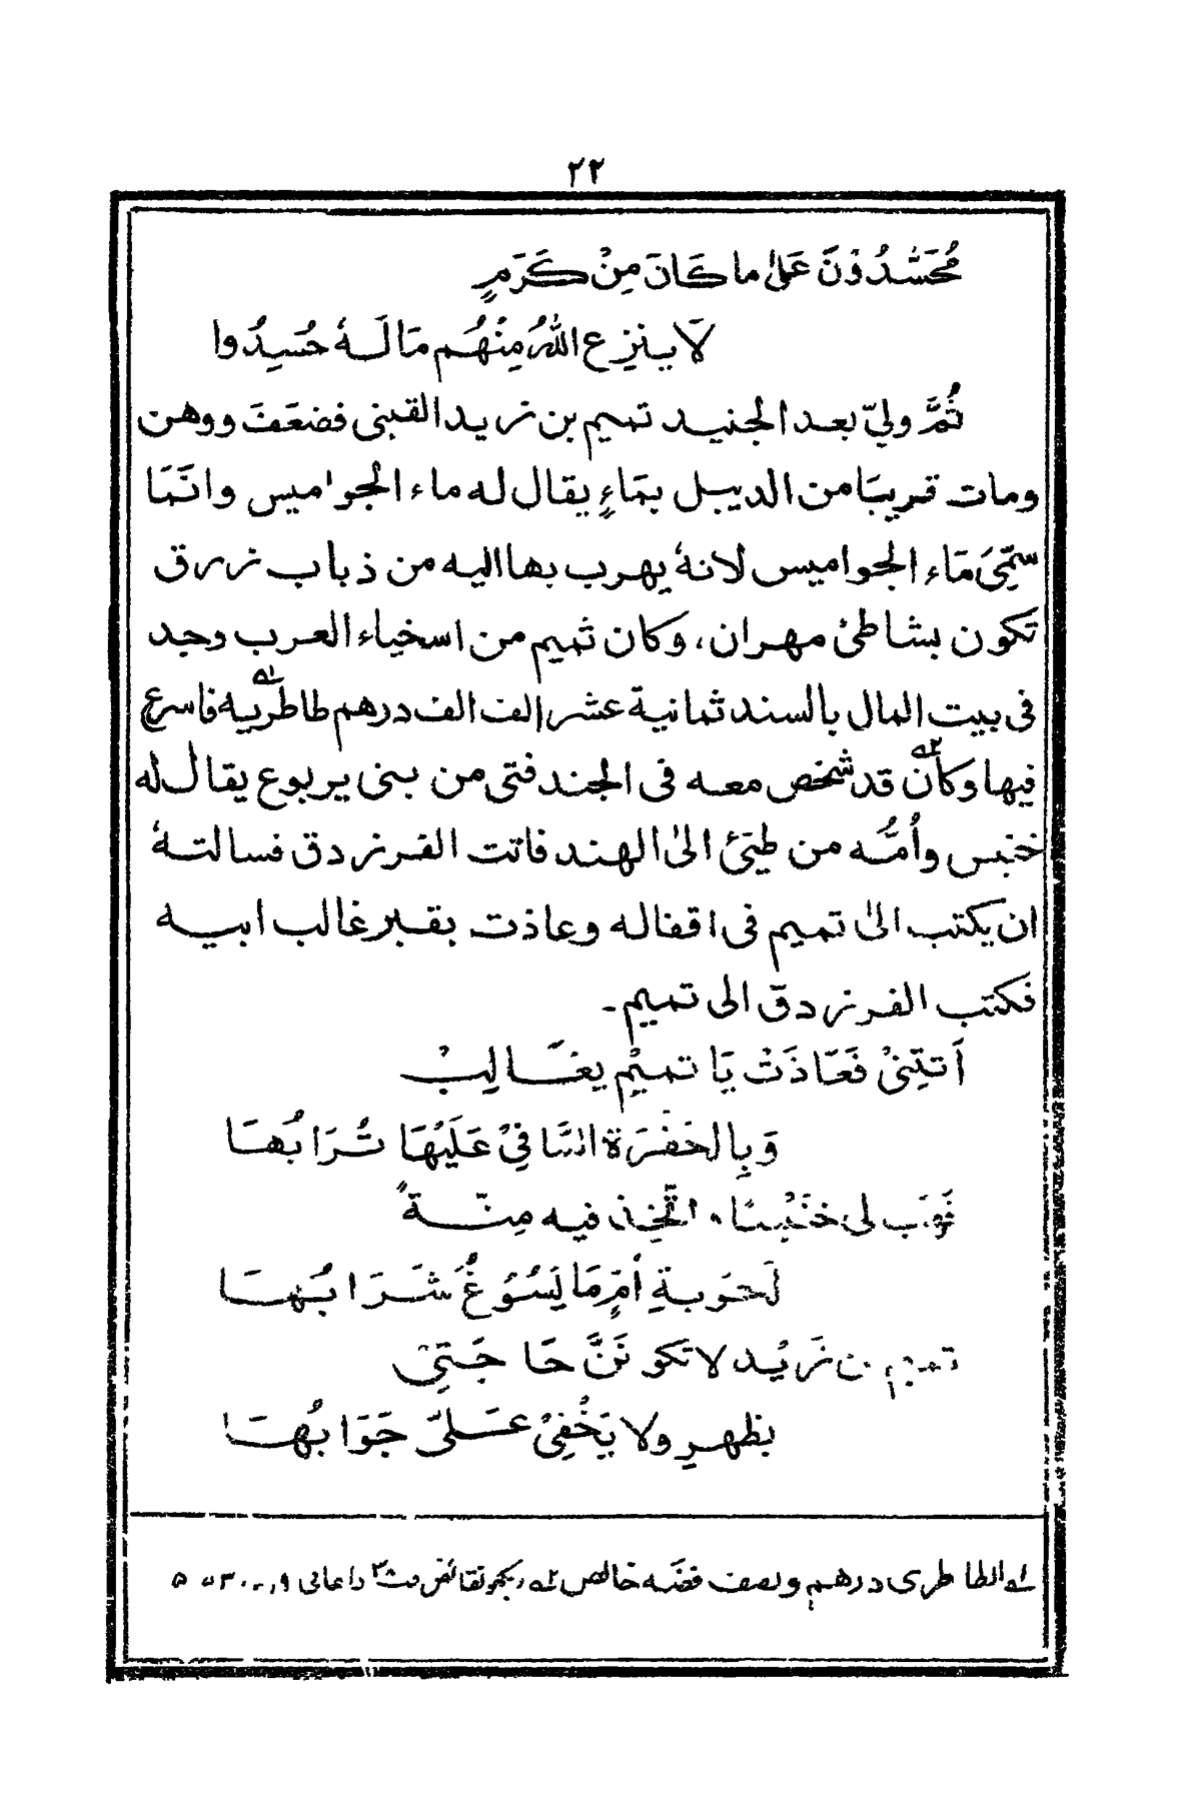 ٢٢
مُحَسَّدُوْنَ عَلىٰ ما كَانَ مِنْ كَرَمٍ
لَا ينزِع اللّٰهُ مِنْهُم مَا لَهٗ حُسِدُوا
ثُمَّ ولِيّ بعد الجنيد تميم بن زيد القينى فضعَفَ ووهن
ومات قريبًا من الديبل بمَاءٍ يقال له ماء الجواميس وانَّمَا
سمِّىَ مَاء الجواميس لانهٗ يهرب بها اليه من ذباب زرق
تكون بشاطئ مهران، وكان تميم من اسخياء العرب وجد
فى بيت المال بالسند ثمانية عشر الف الف درهم طاطرية ١ فاسرع
فيها وكان ٢ قد شخص معه فى الجند فتى من بنى يربوع يقال له
خنبس وأمُّه من طيّئ الىٰ الهند فاتت الفرزدق فسالتهٗ
ان يكتب الىٰ تميم فى اقفاله وعاذت بقبر غالب ابيه
فكتب الفرزدق الى تميم۔
اَتتِنىْ فَعَاذَتْ يَا تميْم يغَالِبْ
وَبِالحَفْرَة السَّافِىْ عَلَيْهَا تُرَابُهَا
فَهَب لى خنَبْسًا، اتَّخِذ فيه مِنّةً
لَحوَبةِ أمٍّ مَا يَسُوْغُ شَرَابُهَا
تميم بن زَيْد لا تكونَنَّ حَاجَتِىْ
بظهرٍ ولا يَخْفىْ عَلىّ جَوَابُهَا
١ الطاطرى درهم ونصف فضّه خالص ٢ ديكھو نقائض اغانى